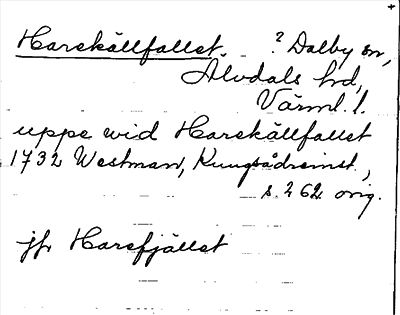 Harskällfallet. ? Dalby sn,
Älvdals hd,
Värml. l.
uppe wid Harskällfallet
1732 Westman, Kungsådreinst.,
s. 262 orig.
jfr Harsfjället